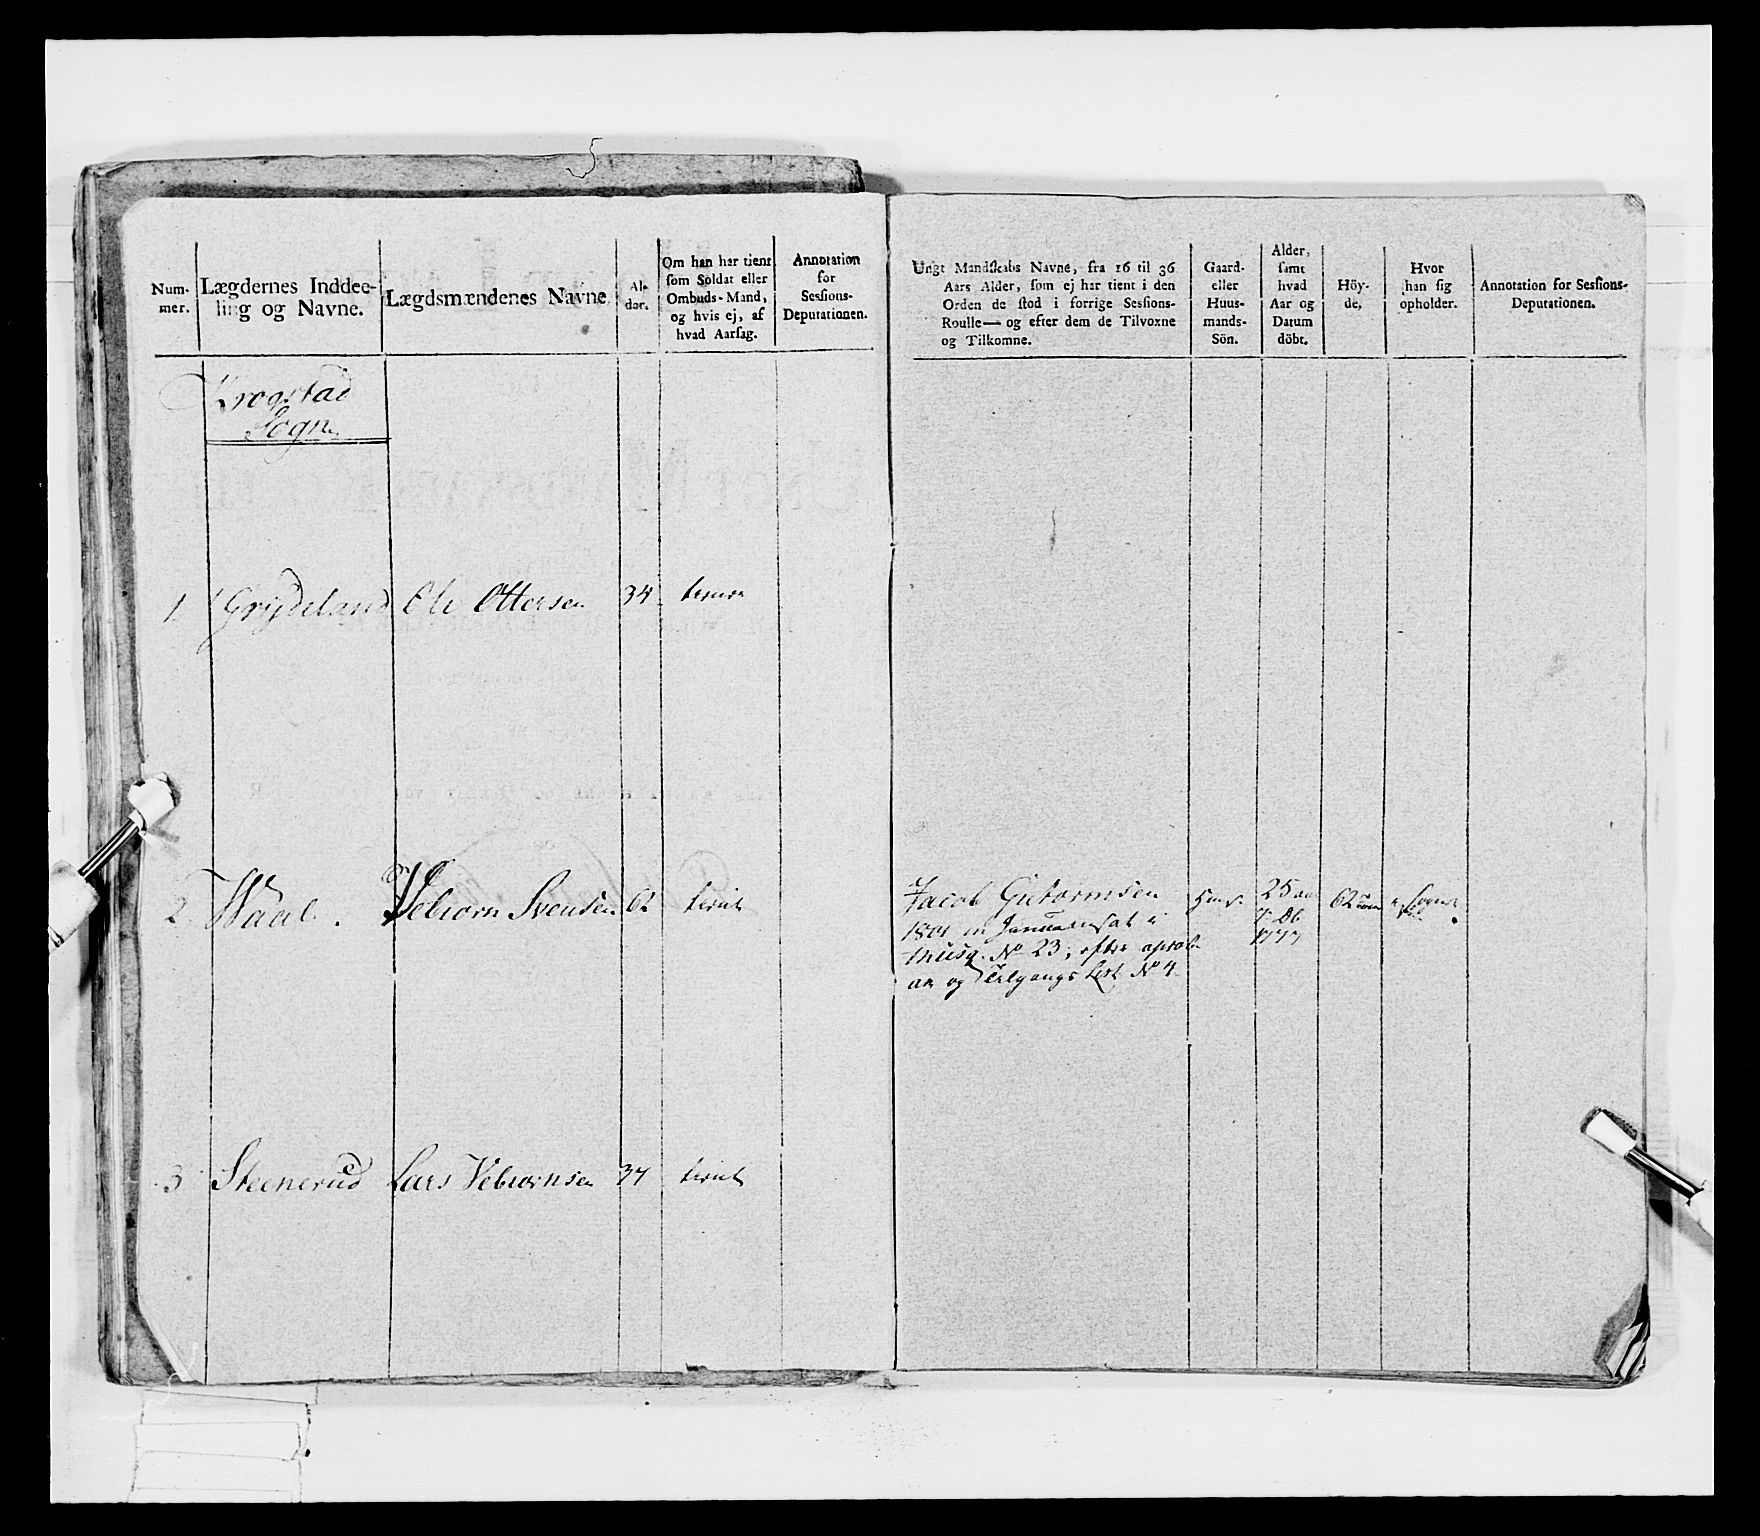 Num-
mer.
Lægdernes Inddee-
ling og Navne.
Lægdsmændenes Navne
Al-
der.
Om han har tient
som Soldat eller
Ombuds-Mand,
og hvis ej, af
hvad Aarsag.
Annotation
for
Sessions-
Deputationen.
Ungt Mandskabs Navne, fra 16 til 36
Aars Alder, som ej har tient i den
Orden de stod i forrige Sessions-
Roulle— og efter dem de Tilvoxne
og Tilkomne.
Gaard-
eller
Huus-
mands-
Sön.
Alder,
samt
hvad
Aar og
Datum
döbt.
Höy-
de,
Hvor
han sig
opholder.
Annotation for Sessions-
Deputationen.
Krogstad
Sogn
1. Grijdeland Ole Ottersen 34
2 Waal. Vebiorn Svensen 62 tient
Jacob Gutormsen 25
1801 in Januar sat i
Musq. No 23, efter
og Tilgangs List No 4
1777
62
Sognet
3 Steenerud Lars Vebiornsen 37 tient